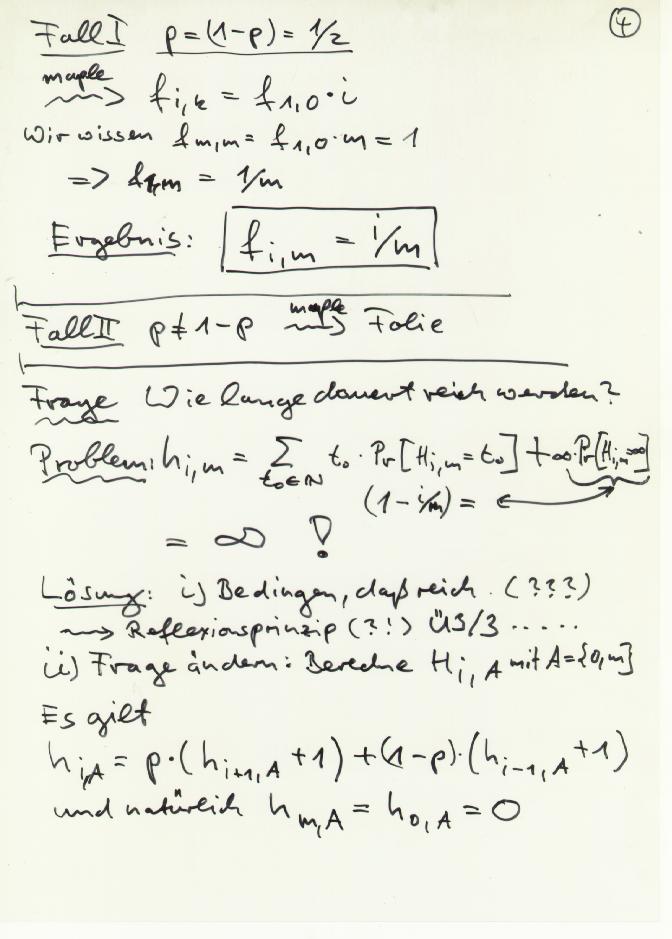 4
Fall I p=(1-p) = 1/2
maple
~~> f_{i,k} = f_{1,0} · i
Wir wissen f_{m,m} = f_{1,0} · m = 1
=> f_{1,m} = 1/m
Ergebnis: f_{i,m} = i/m
Fall II p ≠ 1-p maple ~~> Folie
Frage Wie lange dauert reich werden?
Problem: h_{i,m} = ∑_{t₀∈ℕ} t₀ · Pr[H_{i,m} = t₀] + ∞·Pr[H_{i,m}=∞]
(1 - i/m) =
= ∞ !
Lösung: i) Bedingen, daß reich. (???)
~~> Reflexionsprinzip (?!) ÜS/3 .....
ii) Frage ändern: Berechne H_{i,A} mit A={0,m}
Es gilt
h_{i,A} = p·(h_{i+1,A} +1) + (1-p)·(h_{i-1,A} +1)
und natürlich h_{m,A} = h_{0,A} = 0